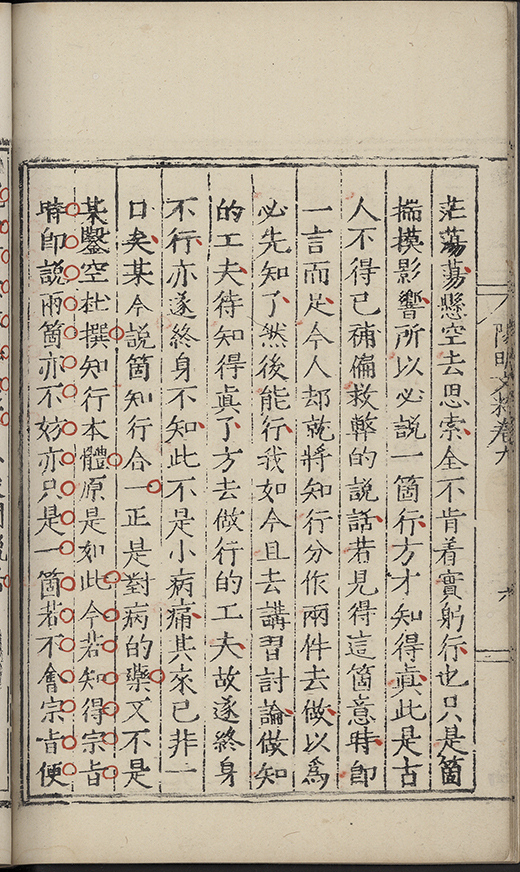 陽明文粹卷九
六
茫蕩蕩懸空去思索全不肯着實躬行也只是箇
揣摸影響所以必說一箇行方才知得真此是古
人不得已補偏救弊的說話若見得這箇意時即
一言而足今人却就將知行分作兩件去做以為
必先知了然後能行我如今且去講習討論做知
的工夫待知得真了方去做行的工夫故遂終身
不行亦遂終身不知此不是小病痛其來已非一
日矣某今說箇知行合一正是對病的藥又不是
某鑿空杜撰知行本體原是如此今若知得宗旨
時即說兩箇亦不妨亦只是一箇若不會宗旨便